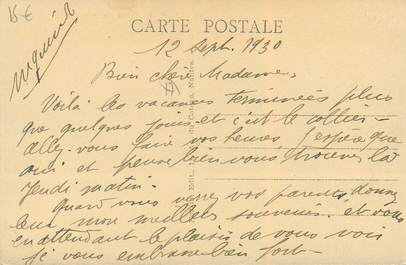 15 €
CARTE POSTALE
12 Sept. 1930
Bien chère Madame,
Voilà les vacances terminées plus
que quelques jours et c'est le collier
allez-vous faire vos heures. J'espère que
oui et pense bien vous trouver là
Jeudi matin.
Quand vous verrez vos parents, donnez
leur mon meilleur souvenir. et vous
en attendant le plaisir de vous voir
je vous embrasse bien fort